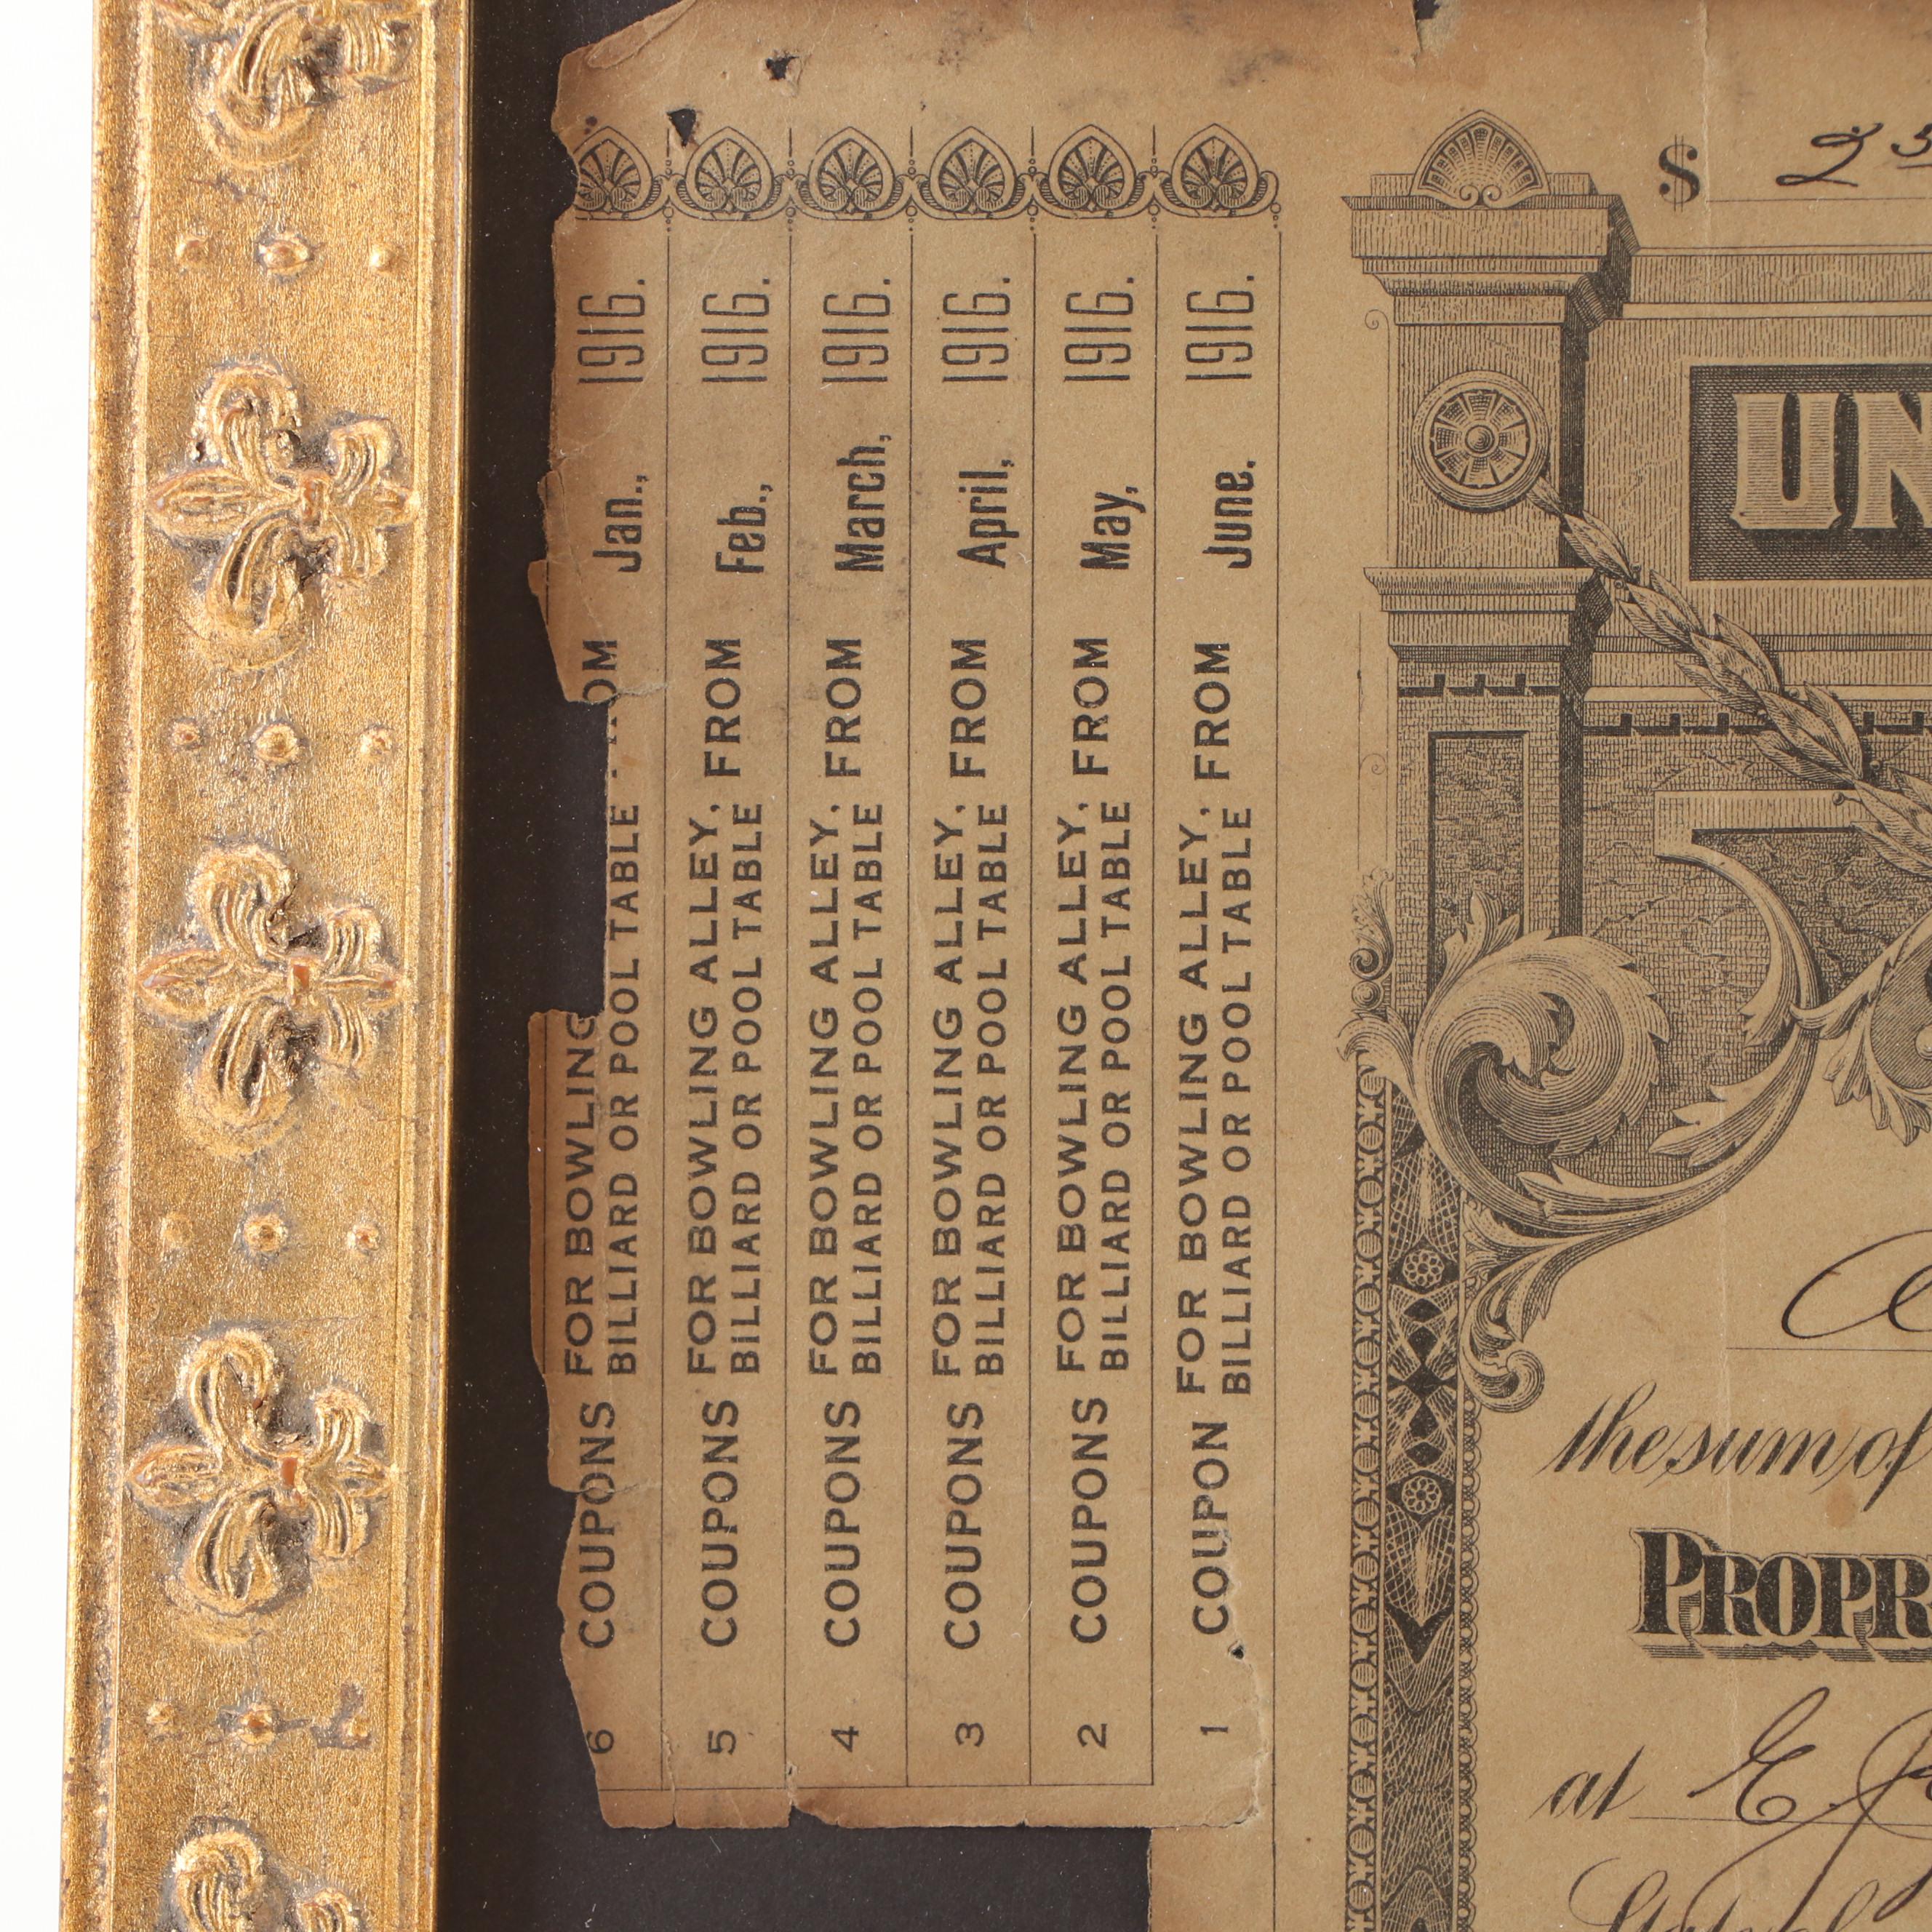 6 COUPONS FOR BOWLING
BILLIARD OR POOL TABLE Jan., 1916.
5 COUPONS FOR BOWLING ALLEY, FROM Feb., 1916.
BILLIARD OR POOL TABLE
4 COUPONS FOR BOWLING ALLEY, FROM March, 1916.
BILLIARD OR POOL TABLE
3 COUPONS FOR BOWLING ALLEY, FROM April, 1916.
BILLIARD OR POOL TABLE
2 COUPONS FOR BOWLING ALLEY, FROM May, 1916.
BILLIARD OR POOL TABLE
1 COUPON FOR BOWLING ALLEY, FROM June, 1916.
BILLIARD OR POOL TABLE
$ 25
UN
the sum of
PROPR
at E.